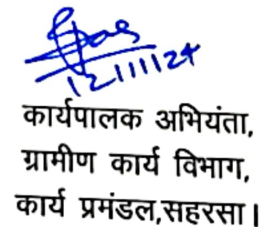 12/11/24
कार्यपालक अभियंता,
ग्रामीण कार्य विभाग,
कार्य प्रमंडल,सहरसा।